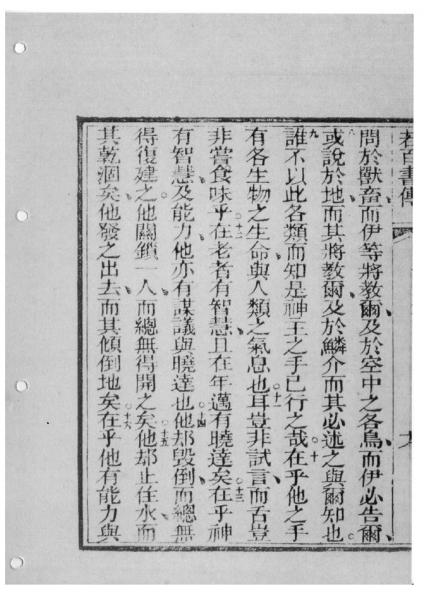 若百書傳
問於獸畜而伊等將教爾及於空中之各鳥而伊必告爾
八或說於地而其將教爾及於鱗介而其必述之與爾知也
九誰不以此各類而知是神王之手已行之哉十在乎他之手
有各生物之生命與人類之氣息也十一耳豈非試言而舌豈
非嘗食味乎十二在老者有智慧且在年邁有曉達矣十三在乎神
有智慧及能力他亦有謀議與曉達也十四他却毀倒而總無
得復建之他關鎖一人而總無得開之矣十五他却止住水而
其乾涸矣他發之出去而其傾倒地矣十六在乎他有能力與